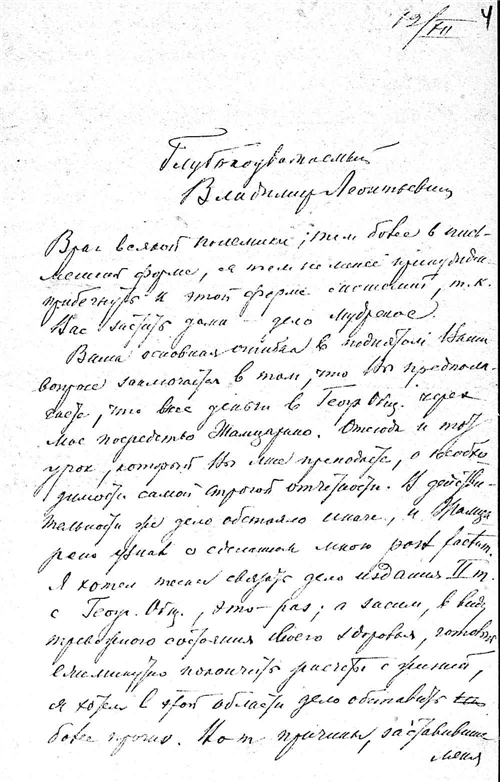 12/XII 4
Глубокоуважаемый
Владимир Леонтьевич
Враг всякой полемики, тем более в пись-
менной форме, я тем не менее принужден
прибегнуть к этой форме сношений, т.к.
Вас застать дома – дело мудреное.
Ваша основная ошибка в поднятом Вами
вопросе заключается в том, что Вы предпола-
гаете, что внес деньги в Геогр. Общ. через
мое посредство Жамцарано. Отсюда и тот
урок, который Вы мне преподаете, о необхо-
димости самой строгой отчетности. В действи-
тельности же дело обстояло иначе, и Жамца
рано узнал о сделанном мною post factum.
Я хотел тесно связать дело издания II т.
с Геогр. Общ., это – раз; а засим, в виду
тревожного состояния своего здоровья, готовый
ежеминутно покончить расчеты с жизнью,
я хотел в этой области дело обставить
более прочно. Вот причины, заставившие
меня